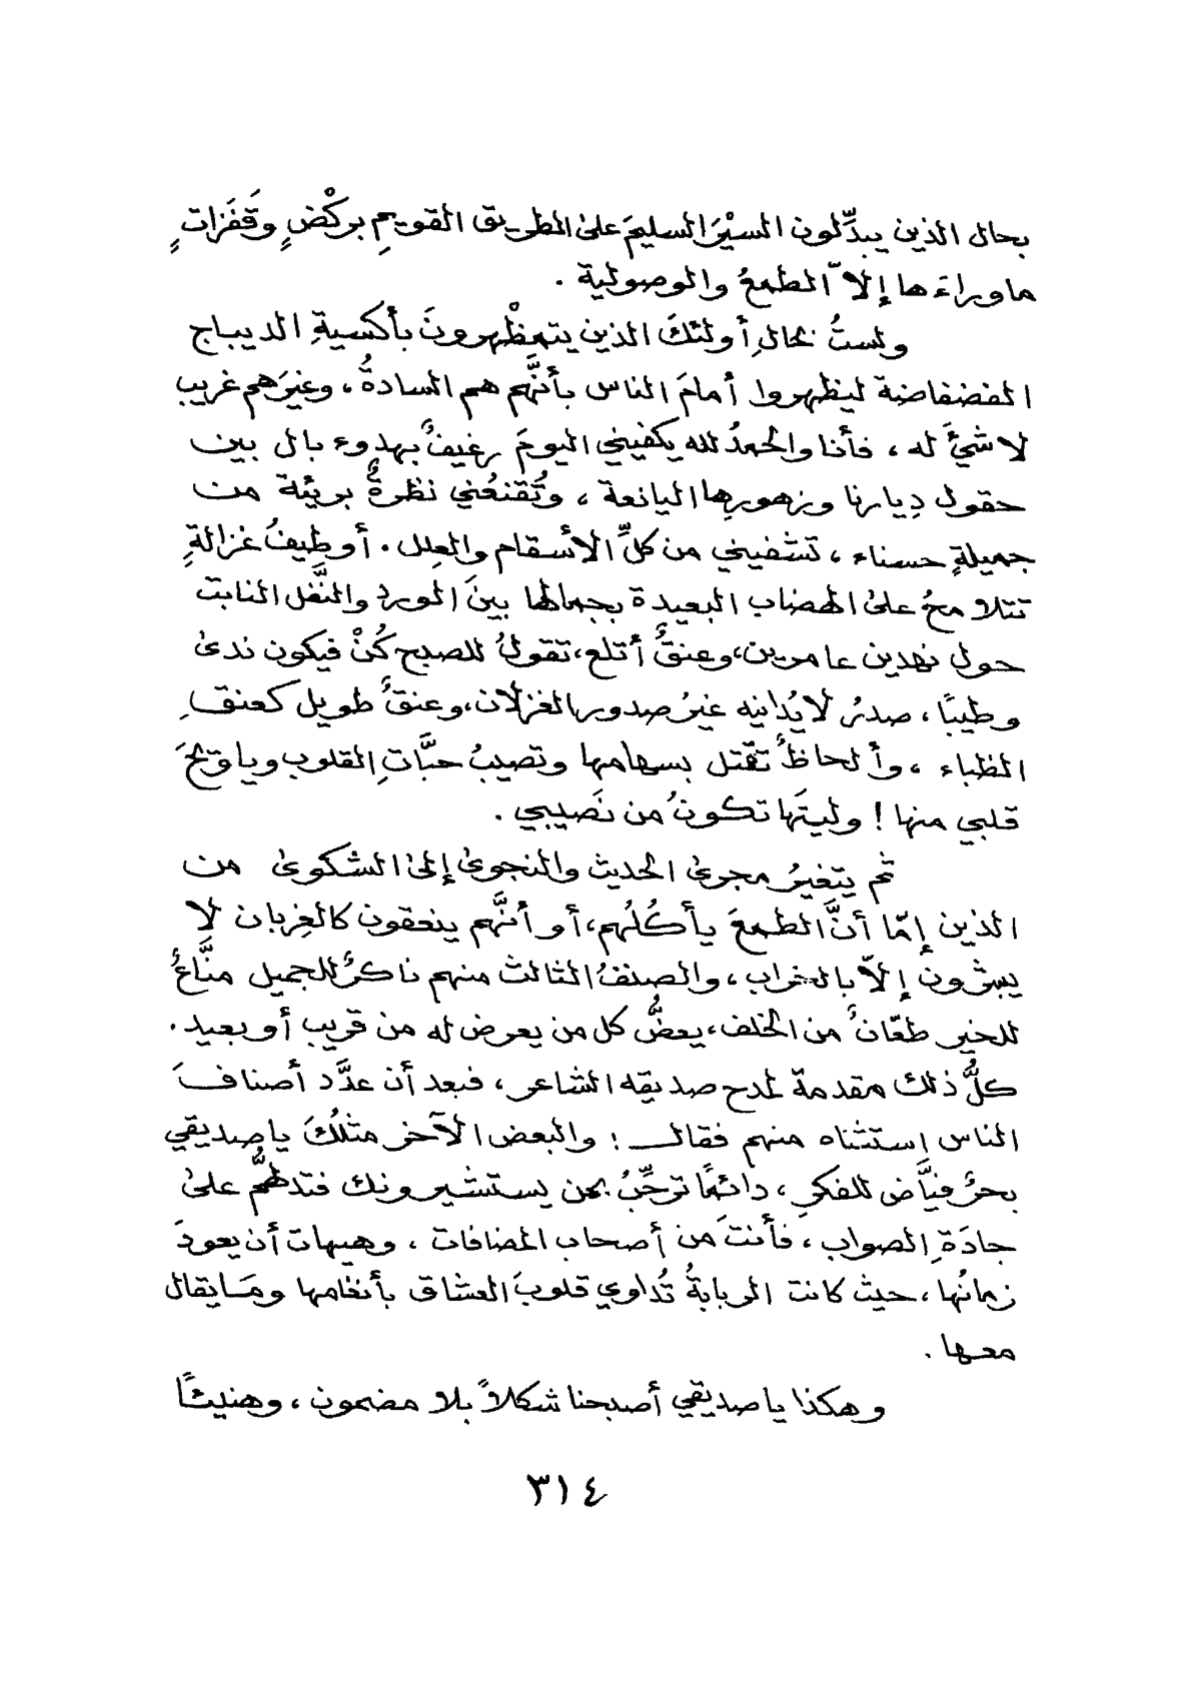 بحال الذين يبدِّلون السيْرَ السليمَ على الطريق القويمِ بركْضٍ وقَفَزاتٍ
ماوراءَها إلاّ الطمعُ والوصولية .
ولستُ بحالِ أولئكَ الذين يتمظْهرونَ بأكسيةِ الديباج
الفضفاضة ليظهروا أمامَ الناس بأنَّهم هم السادةُ ، وغيرَهم غريب
لاشيَّ له ، فأنا والحمدُ لله يكفيني اليومَ رغيفٌ بهدوء بال بين
حقول دِيارنا وزهورِها اليانعة ، وتُقنعُني نظرةٌ بريئة من
جميلةٍ حسناء ، تشفيني من كلِّ الأسقام والعِلل . أو طيفُ غزالةٍ
تتلامحُ على الهضاب البعيدة بجمالها بينَ الورد والنَّفل النابت
حول نهدين عامرين، وعنقٌ أتلع، تقولُ للصبح كُنْ فيكون ندى
وطيبًا ، صدرٌ لايُدانيه غيرُ صدور الغزلان، وعنقٌ طويل كعنقِ
الظباء ، وألحاظٌ تقتل بسهامها وتصيبُ حبَّاتِ القلوب وياويحَ
قلبي منها ! وليتَها تكونُ من نَصيبي .
ثم يتغيرُ مجرى الحديث والنجوى إلى الشكوى من
الذين إمّا أنَّ الطمعَ يأكُلُهم، أو أنَّهم ينعقون كالغِربان لا
يبشّرون إلاّ بالخراب ، والصنفُ الثالث منهم ناكرٌ للجميل منَّاعٌ
للخير طعّانٌ من الخلف، يعضُّ كل من يعرض له من قريب أو بعيد .
كلُّ ذلك مقدمة لمدح صديقه الشاعر ، فبعد أن عدَّد أصنافَ
الناس استثناه منهم فقال : والبعض الآخر مثلُكَ ياصديقي
بحرٌ فيَّاض للفكرِ ، دائمًا ترحِّبُ بمن يستشيرونك فتدلهُّم على
جادَةِ الصواب ، فأنتَ من أصحاب المضافات ، وهيهات أن يعودَ
زمانُها ، حيث كانت الربابةُ تُداوي قلوبَ العشاق بأنغامها ومَايقال
معها .
وهكذا ياصديقي أصبحنا شكلاً بلا مضمون ، وهنيئًا
٣١٤